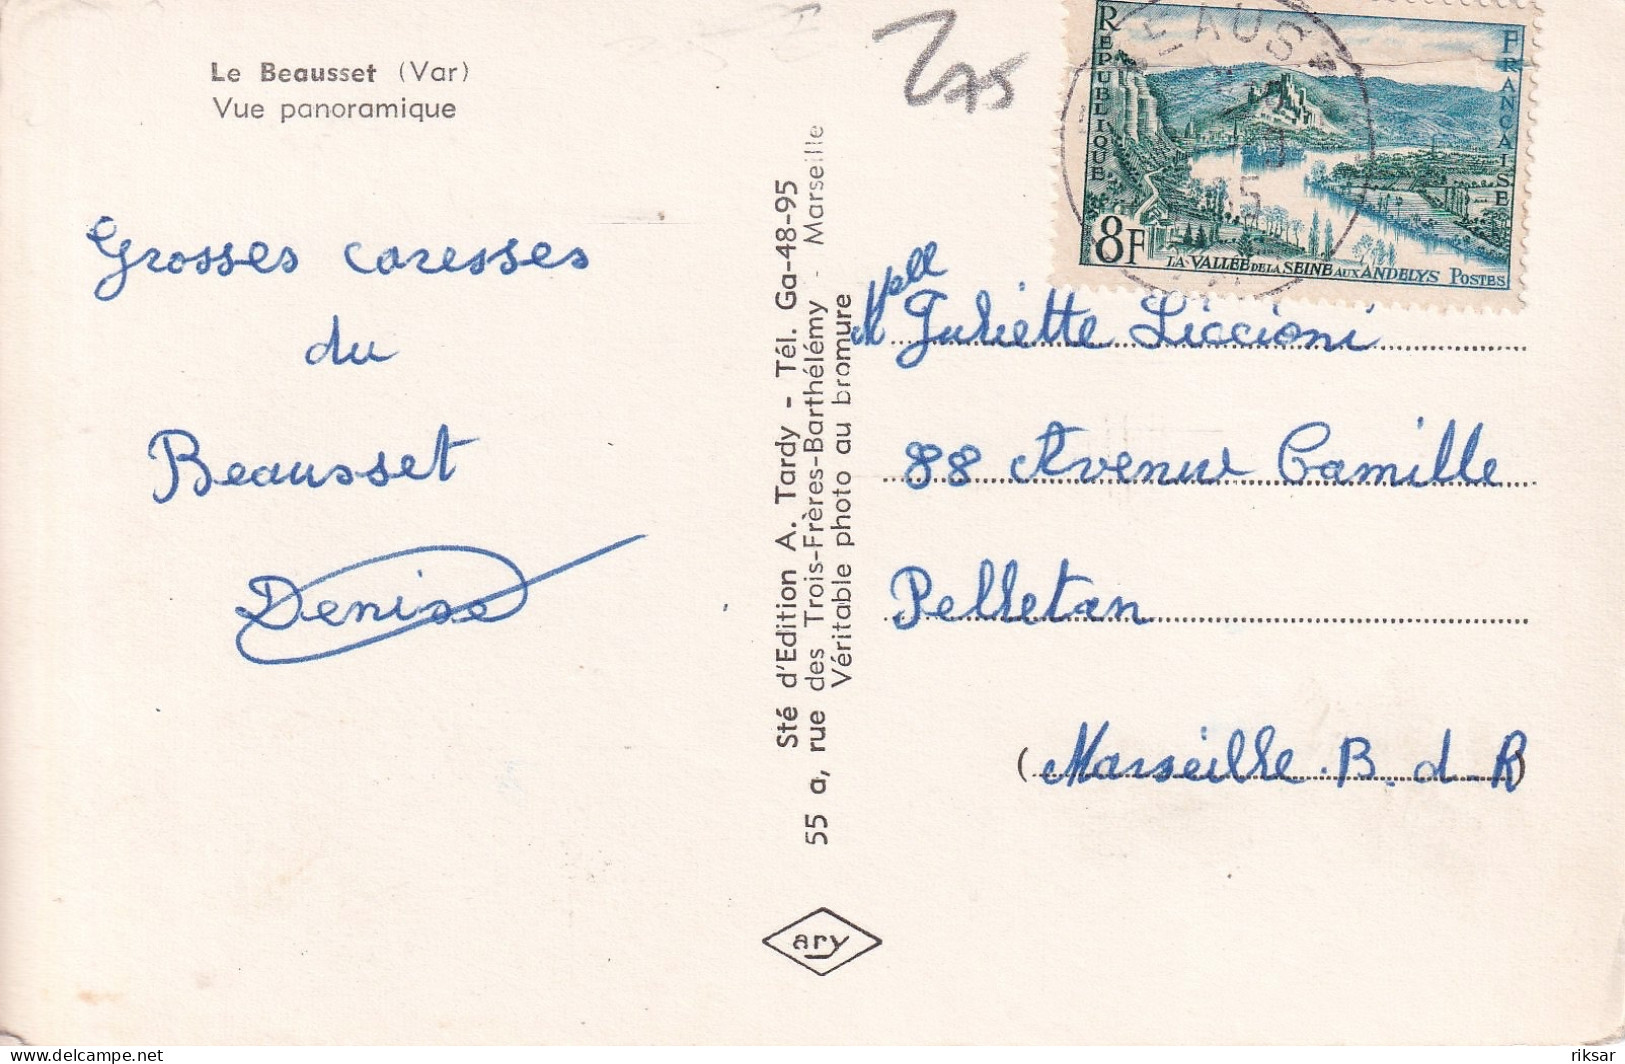 Le Beausset (Var)
Vue panoramique
Grosses caresses
du
Beausset
Denise
Sté d'Edition A. Tardy - Tél. Ga-48-95
55 a, rue des Trois-Frères-Barthélémy - Marseille
Véritable photo au bromure
ary
275
RÉPUBLIQUE
FRANÇAISE
8F
LA VALLÉE DE LA SEINE AUX ANDELYS POSTES
BEAUS
Melle Juliette Liccioni
88 Avenue Camille
Pelletan
(Marseille. B. d. R)
delcampe.net
riksar